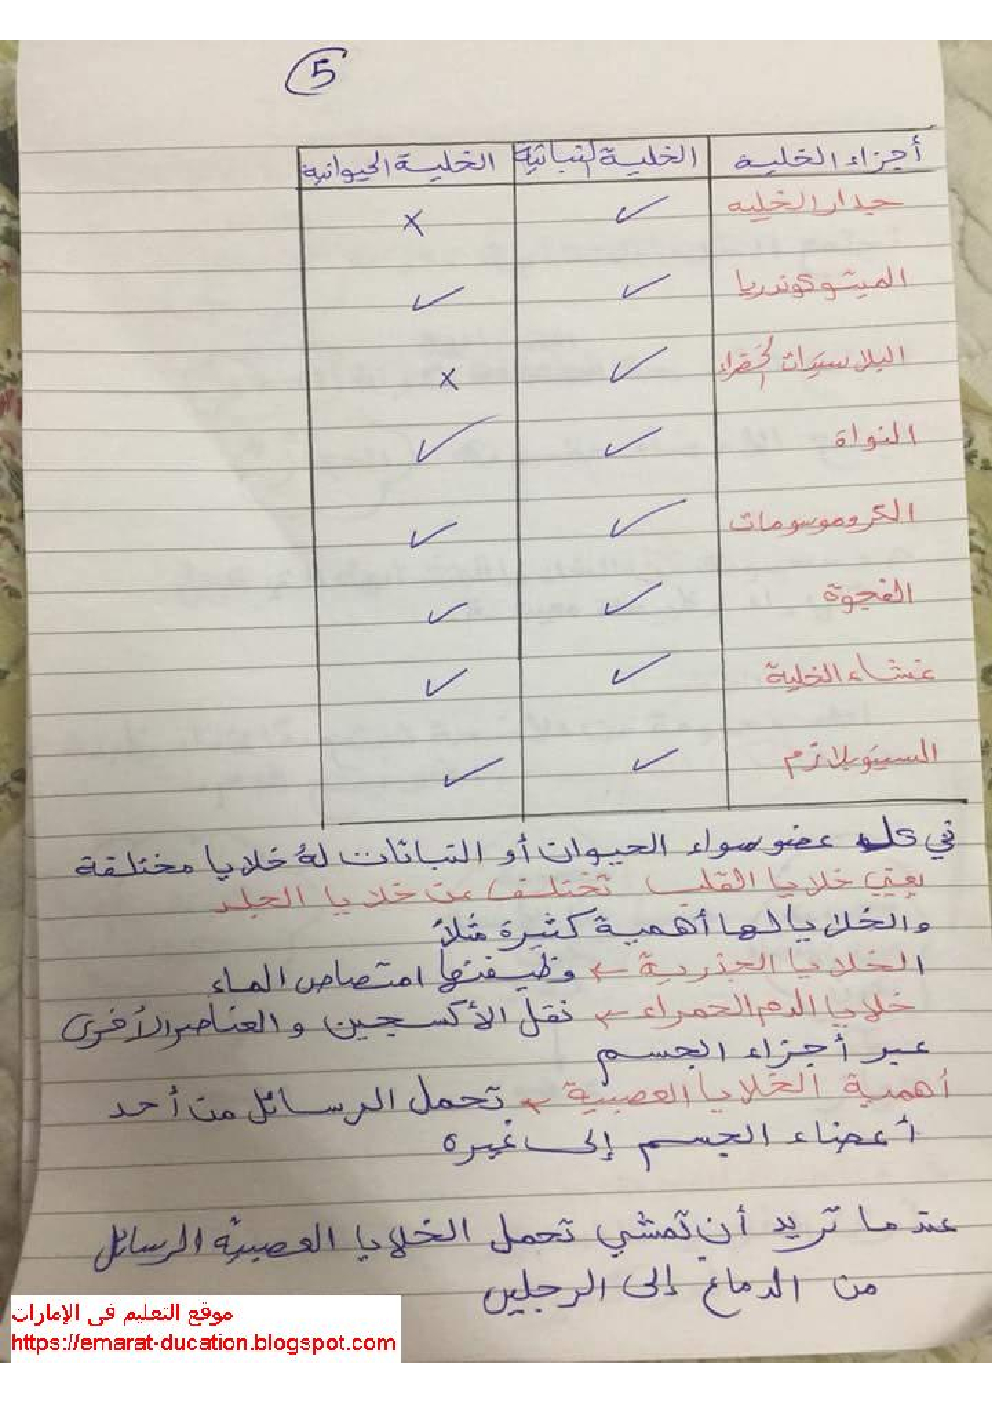 5
أجزاء الخلية	الخلية النباتية	الخلية الحيوانية
جدار الخلية	✓	×
الميتوكوندريا	✓	✓
البلاستيدات الخضراء	✓	×
النواة	✓	✓
الكروموسومات	✓	✓
الفجوة	✓	✓
غشاء الخلية	✓	✓
السيتوبلازم	✓	✓
في كل عضو سواء الحيوان أو النباتات له خلايا مختلفة
يعني خلايا القلب تختلف عن خلايا الجلد
والخلايا لها أهمية كثيرة مثلاً
الخلايا الجذرية ← وظيفتها امتصاص الماء
خلايا الدم الحمراء ← نقل الأكسجين والعناصر الأخرى
عبر أجزاء الجسم
أهمية الخلايا العصبية ← تحمل الرسائل من أحد
أعضاء الجسم إلى غيره
عندما تريد أن تمشي تحمل الخلايا العصبية الرسائل
من الدماغ إلى الرجلين
موقع التعليم فى الإمارات
https://emarat-ducation.blogspot.com